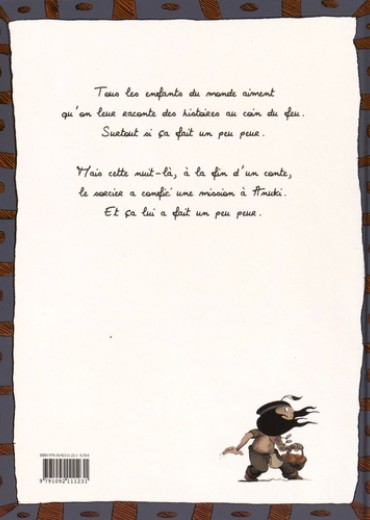 Tous les enfants du monde aiment
qu'on leur raconte des histoires au coin du feu.
Surtout si ça fait un peu peur.
Mais cette nuit-là, à la fin d'un conte,
le sorcier a confié une mission à Anuki.
Et ça lui a fait un peu peur.
9 791092 111231